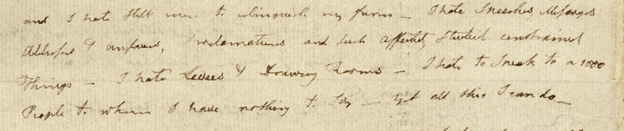 and I hate Still more to relinquish my farm — I hate Speeches, Messages
Addresses & answers, Proclamations and such affected, studied constrained
Things — I hate Levees & Drawing Rooms — I hate to Speak to a 1000
People to whom I have nothing to Say — yet all this I can do —